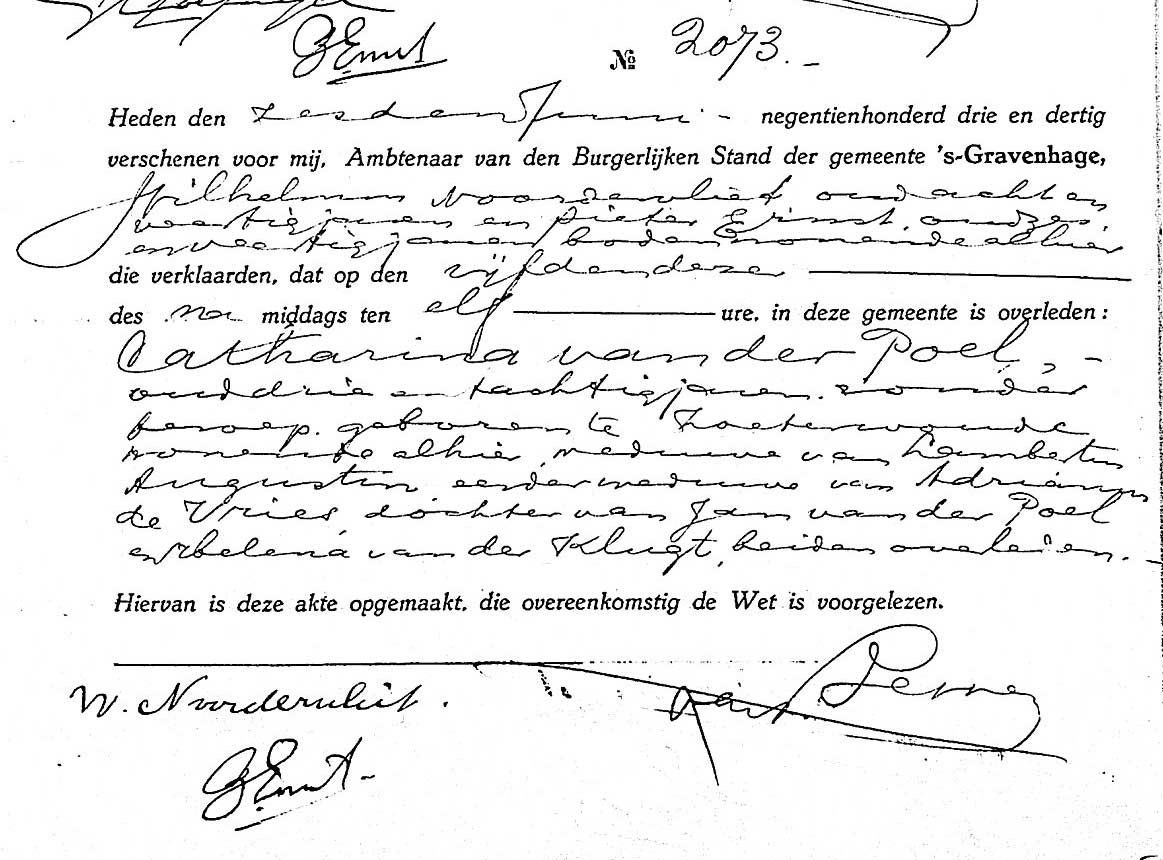 PErnst
№ 2073.
Heden den zesden Juni negentienhonderd drie en dertig
verschenen voor mij, Ambtenaar van den Burgerlijken Stand der gemeente 's-Gravenhage,
Wilhelmus Noordervliet, oud acht en
veertig jaren en Pieter Ernst, oud zes
en veertig jaren, boden, wonende alhier
die verklaarden, dat op den vijfden dezer
des na middags ten elf ure, in deze gemeente is overleden:
Catharina van der Poel, -
oud drie en tachtig jaren, zonder
beroep, geboren te Zoeterwoude
wonende alhier, weduwe van Lambertus
Augustin, eerder weduwe van Adrianus
de Vries, dochter van Jan van der Poel
en Helena van der Klugt, beiden overleden.
Hiervan is deze akte opgemaakt, die overeenkomstig de Wet is voorgelezen.
W. Noordervliet.
PErnst